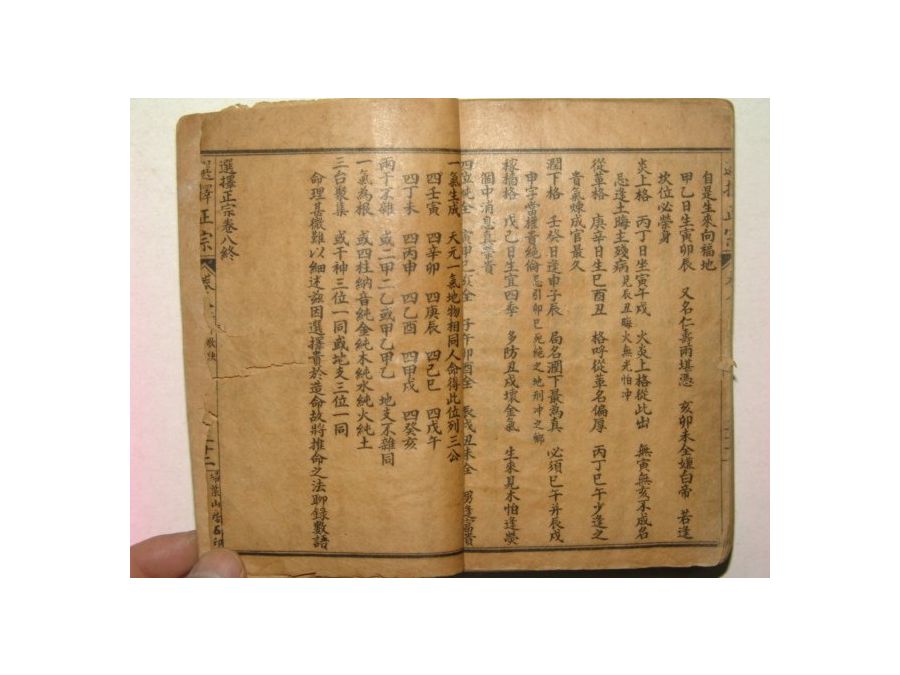 自是生來向福地
甲乙日生寅卯辰 又名仁壽兩堪憑 亥卯未全嫌白帝 若逢
坎位必榮身
炎上格 丙丁日坐寅午戌 火炎上格從此出 無寅無亥不成名
忌逢土晦主殘病 見辰丑晦火無光怕冲
從革格 庚辛日生巳酉丑 格呼從革名偏厚 丙丁巳午少逢之
貴氣煉成官最久
潤下格 壬癸日逢申子辰 局名潤下最高真 必須巳午并辰戌
申字當權貴絕倫 忌引卯巳死絕之地刑冲之鄉
稼穡格 戊己日生宜四季 多防丑戌壞金氣 生來見木怕逢熒
個中消息真榮貴
四位純全 寅申巳亥全 子午卯酉全 辰戌丑未全 男逢富貴
一氣生成 天元一氣地物相同人命得此位列三公
四壬寅 四辛卯 四庚辰 四己巳 四戊午
四丁未 四丙申 四乙酉 四甲戌 四癸亥
兩干不雜 或二甲二乙或甲乙甲乙 地支不雜同
一氣為根 或四柱納音純金純木純水純火純土
三台聚集 或干神三位一同或地支三位一同
命理甚微難以細述茲因選擇貴於造命故將推命之法聊錄數語
選擇正宗卷八終
選擇正宗 卷
葉山